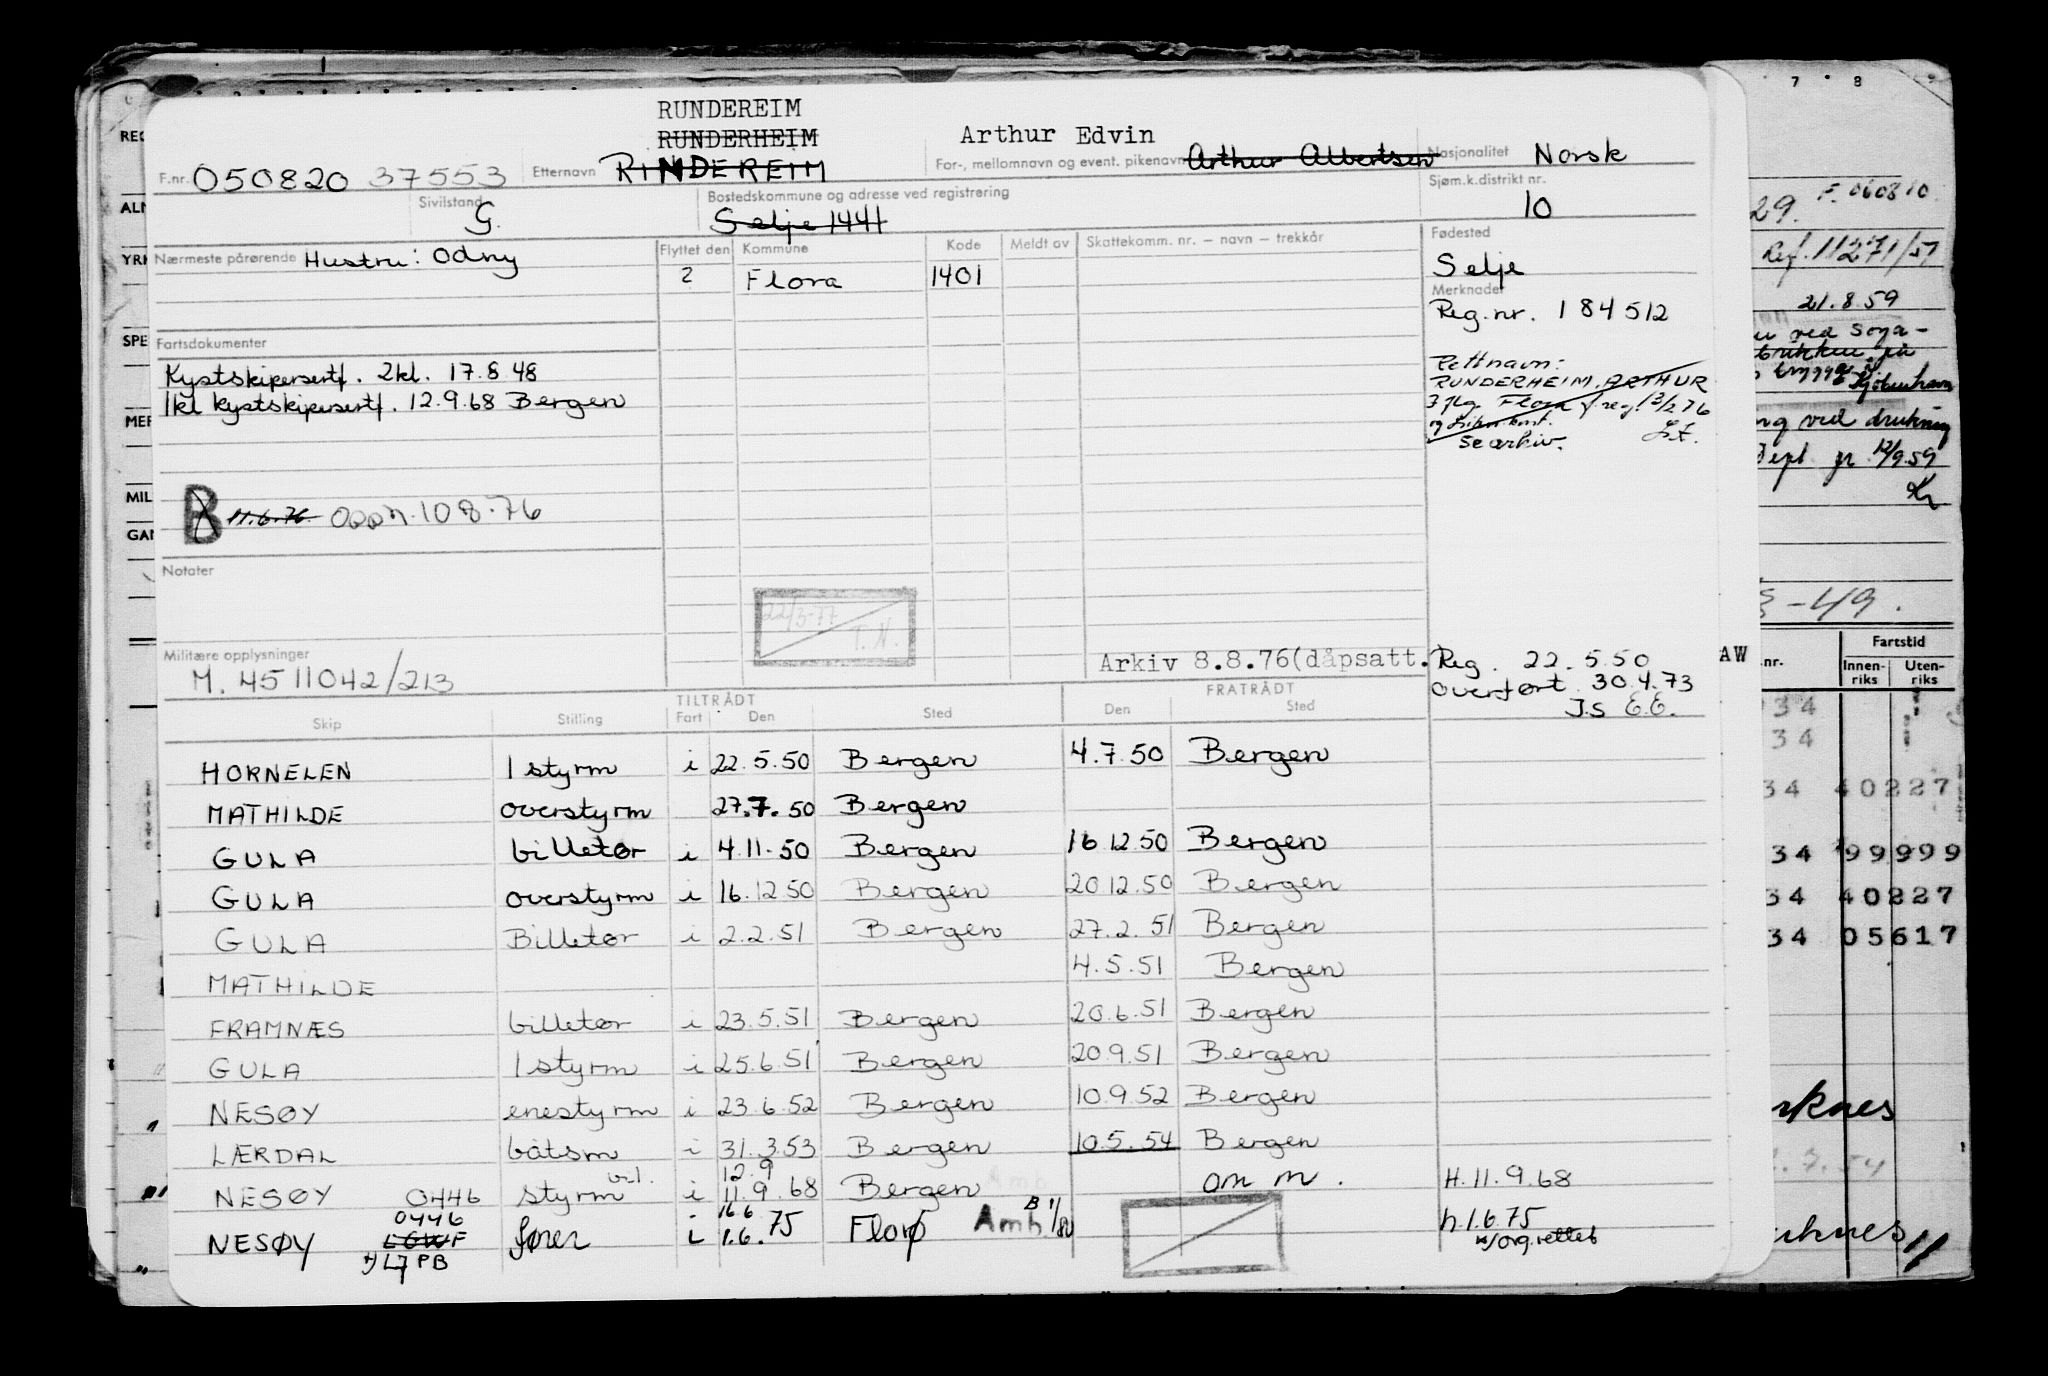 RUNDEREIM
RUNDERHEIM
Arthur Edvin
F.nr. 050820 37553 Etternavn RINDEREIM For-, mellomnavn og event. pikenavn Arthur Albertsen Nasjonalitet Norsk
Sivilstand G. Bostedskommune og adresse ved registrering Selje 1441 Sjøm.k.distrikt nr. 10
Nærmeste pårørende Hustru: Odny
Flyttet den Kommune Kode Meldt av Skattekomm. nr. – navn – trekkår
2 Flora 1401
Fødested
Selje
Merknader
Reg.nr. 184512
Rettnavn:
RUNDERHEIM, ARTHUR
se arkiv.
Fartsdokumenter
Kystskippersertf. 2kl. 17.8.48
1kl kystskippersertf. 12.9.68 Bergen
B 11.6.76 Oppn. 10.8.76
Notater
22/3-77
T.N.
Militære opplysninger
M. 4511042/213
Arkiv 8.8.76(dåpsatt.
Reg. 22.5.50
overført 30.4.73
J.S E.E.
TILTRÅDT FRATRÅDT
Skip Stilling Fart Den Sted Den Sted
HORNELEN 1 styrm i 22.5.50 Bergen 4.7.50 Bergen
MATHILDE overstyrm 27.7.50 Bergen
GULA billetør i 4.11.50 Bergen 16.12.50 Bergen
GULA overstyrm i 16.12.50 Bergen 20.12.50 Bergen
GULA Billetør i 2.2.51 Bergen 27.2.51 Bergen
MATHILDE 4.5.51 Bergen
FRAMNÆS billetør i 23.5.51 Bergen 20.6.51 Bergen
GULA 1 styrm i 25.6.51 Bergen 20.9.51 Bergen
NESØY enestyrm i 23.6.52 Bergen 10.9.52 Bergen
LÆRDAL båtsm i 31.3.53 Bergen 10.5.54 Bergen
12.9
NESØY 0446 styrm bil. i 11.9.68 Bergen om m. H. 11.9.68
0446 16.6
NESØY LGWF fører i 1.6.75 Florø Amh. B 1/80 h.1.6.75
LJPB org. rettet
7 8
29. F. 060810
Ref. 11271/57
21.8.59
ved Soya-
København
ved drukning
12/9.59
Kr
-49.
AW
nr.
Fartstid
Innen-
riks
Uten-
riks
34
34
34 40227
34 99999
34 40227
34 05617
REG
ALM
YRK
SPE
MER
MIL
GAN